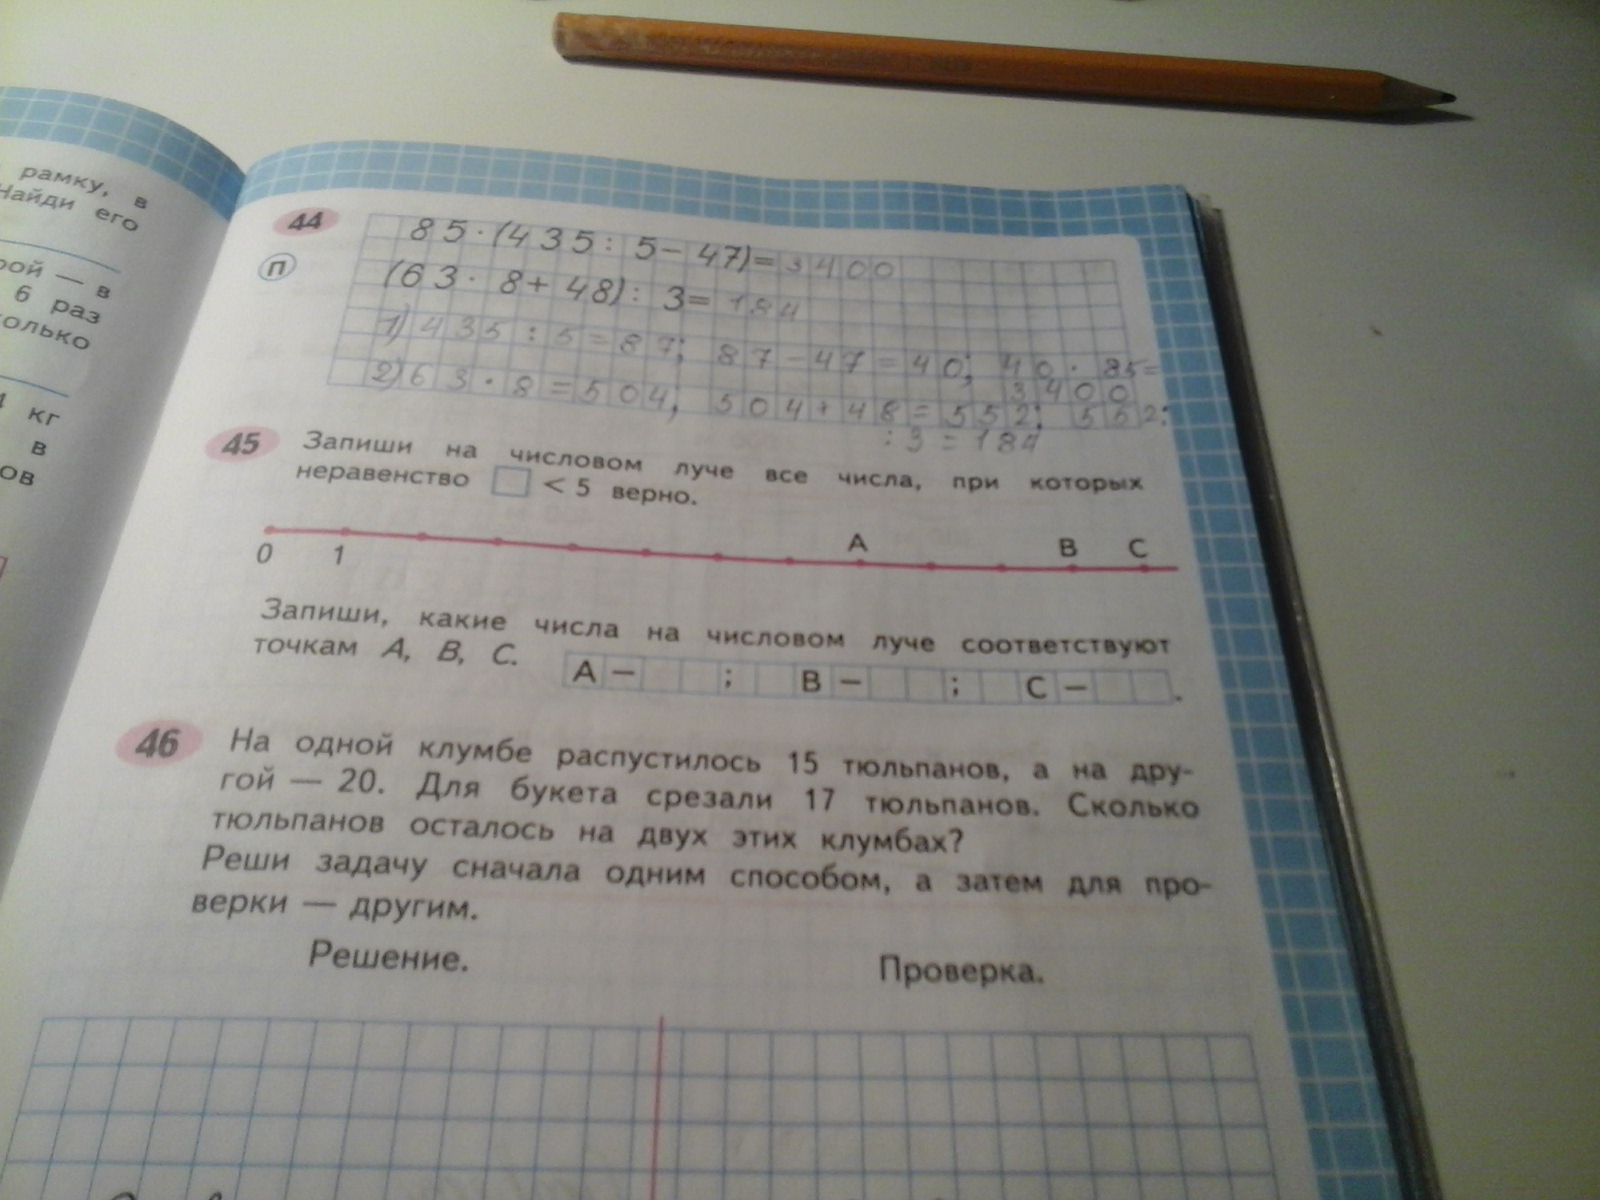 рамку, в
Найди его
рой — в
6 раз
колько
кг
в
ов
44
85·(435:5−47)=3400
П
(63·8+48):3=184
1) 435:5=87; 87−47=40; 40·85=
3400
2) 63·8=504; 504+48=552; 552:
:3=184
45 Запиши на числовом луче все числа, при которых
неравенство □ < 5 верно.
A B C
0 1
Запиши, какие числа на числовом луче соответствуют
точкам A, B, C. A — ; B — ; C — .
46 На одной клумбе распустилось 15 тюльпанов, а на дру-
гой — 20. Для букета срезали 17 тюльпанов. Сколько
тюльпанов осталось на двух этих клумбах?
Реши задачу сначала одним способом, а затем для про-
верки — другим.
Решение. Проверка.